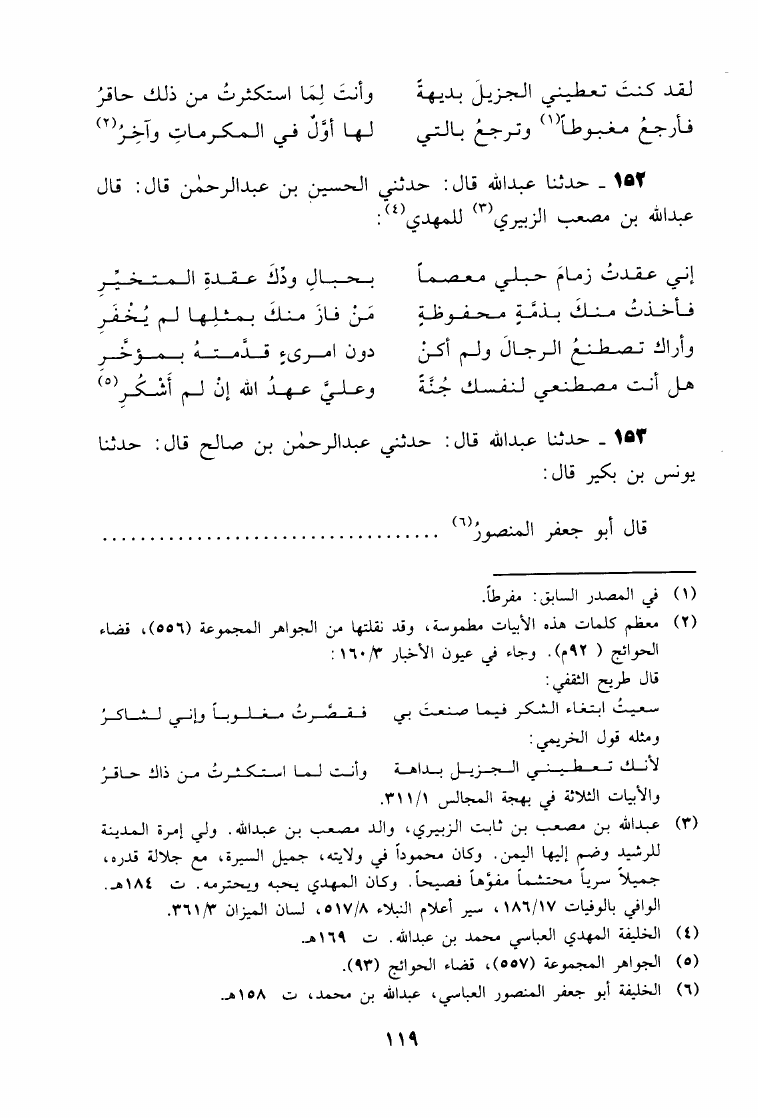 لقد كنتَ تعطيني الجزيلَ بديهةً وأنتَ لِمَا استكثرتُ من ذلك حاقرُ
فأرجعُ مغبوطاً(١) وترجعُ بالتي لها أوَّلٌ في المكرماتِ وآخِرُ(٢)
١٥٢ ـ حدثنا عبدالله قال: حدثني الحسين بن عبدالرحمٰن قال: قال
عبدالله بن مصعب الزبيري(٣) للمهدي(٤):
إني عقدتُ زمامَ حبلي معصماً بحبالِ ودِّكَ عقدةِ المتخيِّرِ
فأخذتُ منكَ بذمَّةٍ محفوظةٍ مَنْ فازَ منكَ بمثلِها لم يُخْفَرِ
وأراكَ تصطنعُ الرجالَ ولم أكنْ دون امرىءٍ قدَّمتَهُ بمؤخَّرِ
هل أنت مصطنعي لنفسك جُنَّةً وعليَّ عهدُ الله إنْ لم أَشْكُرِ(٥)
١٥٣ ـ حدثنا عبدالله قال: حدثني عبدالرحمٰن بن صالح قال: حدثنا
يونس بن بكير قال:
قال أبو جعفر المنصورُ(٦) ....................................
(١) في المصدر السابق: مفرطاً.
(٢) معظم كلمات هذه الأبيات مطموسة، وقد نقلتها من الجواهر المجموعة (٥٥٦)، قضاء
الحوائج ( ٩٢م). وجاء في عيون الأخبار ١٦٠/٣:
قال طريح الثقفي:
سعيتُ ابتغاء الشكر فيما صنعتَ بي فقصَّرتُ مغلوباً وإني لشاكرُ
ومثله قول الخريمي:
لأنك تعطيني الجزيل بداهة وأنت لما استكثرتُ من ذاك حاقرُ
والأبيات الثلاثة في بهجة المجالس ٣١١/١.
(٣) عبدالله بن مصعب بن ثابت الزبيري، والد مصعب بن عبدالله. ولي إمرة المدينة
للرشيد وضم إليها اليمن. وكان محموداً في ولايته، جميل السيرة، مع جلالة قدره،
جميلاً سرياً محتشماً مفوَّهاً فصيحاً. وكان المهدي يحبه ويحترمه. ت ١٨٤هـ.
الوافي بالوفيات ١٨٦/١٧، سير أعلام النبلاء ٥١٧/٨، لسان الميزان ٣٦١/٣.
(٤) الخليفة المهدي العباسي محمد بن عبدالله. ت ١٦٩هـ.
(٥) الجواهر المجموعة (٥٥٧)، قضاء الحوائج (٩٣).
(٦) الخليفة أبو جعفر المنصور العباسي، عبدالله بن محمد، ت ١٥٨هـ.
١١٩